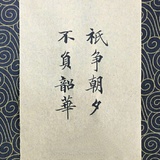 祗争朝夕
不負韶華